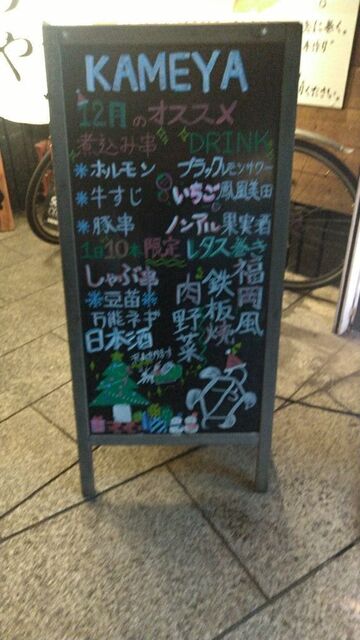 KAMEYA
12月のオススメ
煮込み串
DRINK
*ホルモン
ブラックレモンサワー
*牛すじ
いちご
*豚串
ノンアル果実酒
1日10本限定
レタス巻き
しゃぶ串
*豆苗*
万能ネギ
日本酒
福岡風
鉄板焼
肉野菜